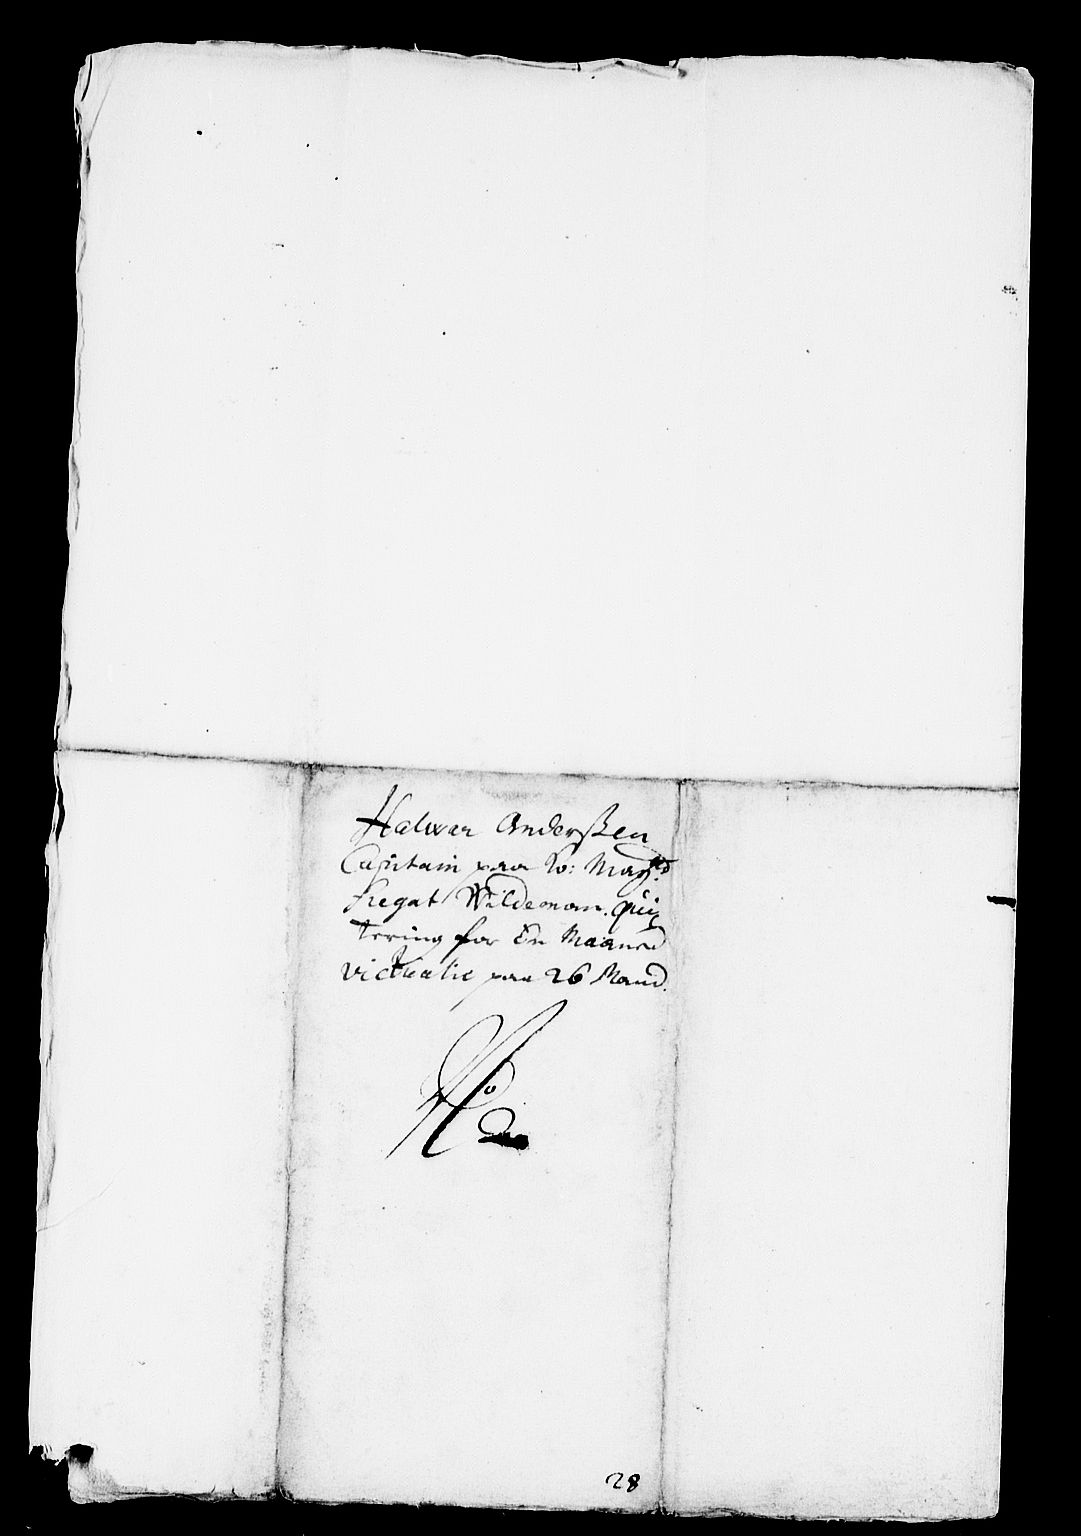 Halwer Anderßen
Capitain paa Ko: May.tts
fregat Wildeman. Quiz
tering for En Maaned
victualie paa 26 Mand.
No
28